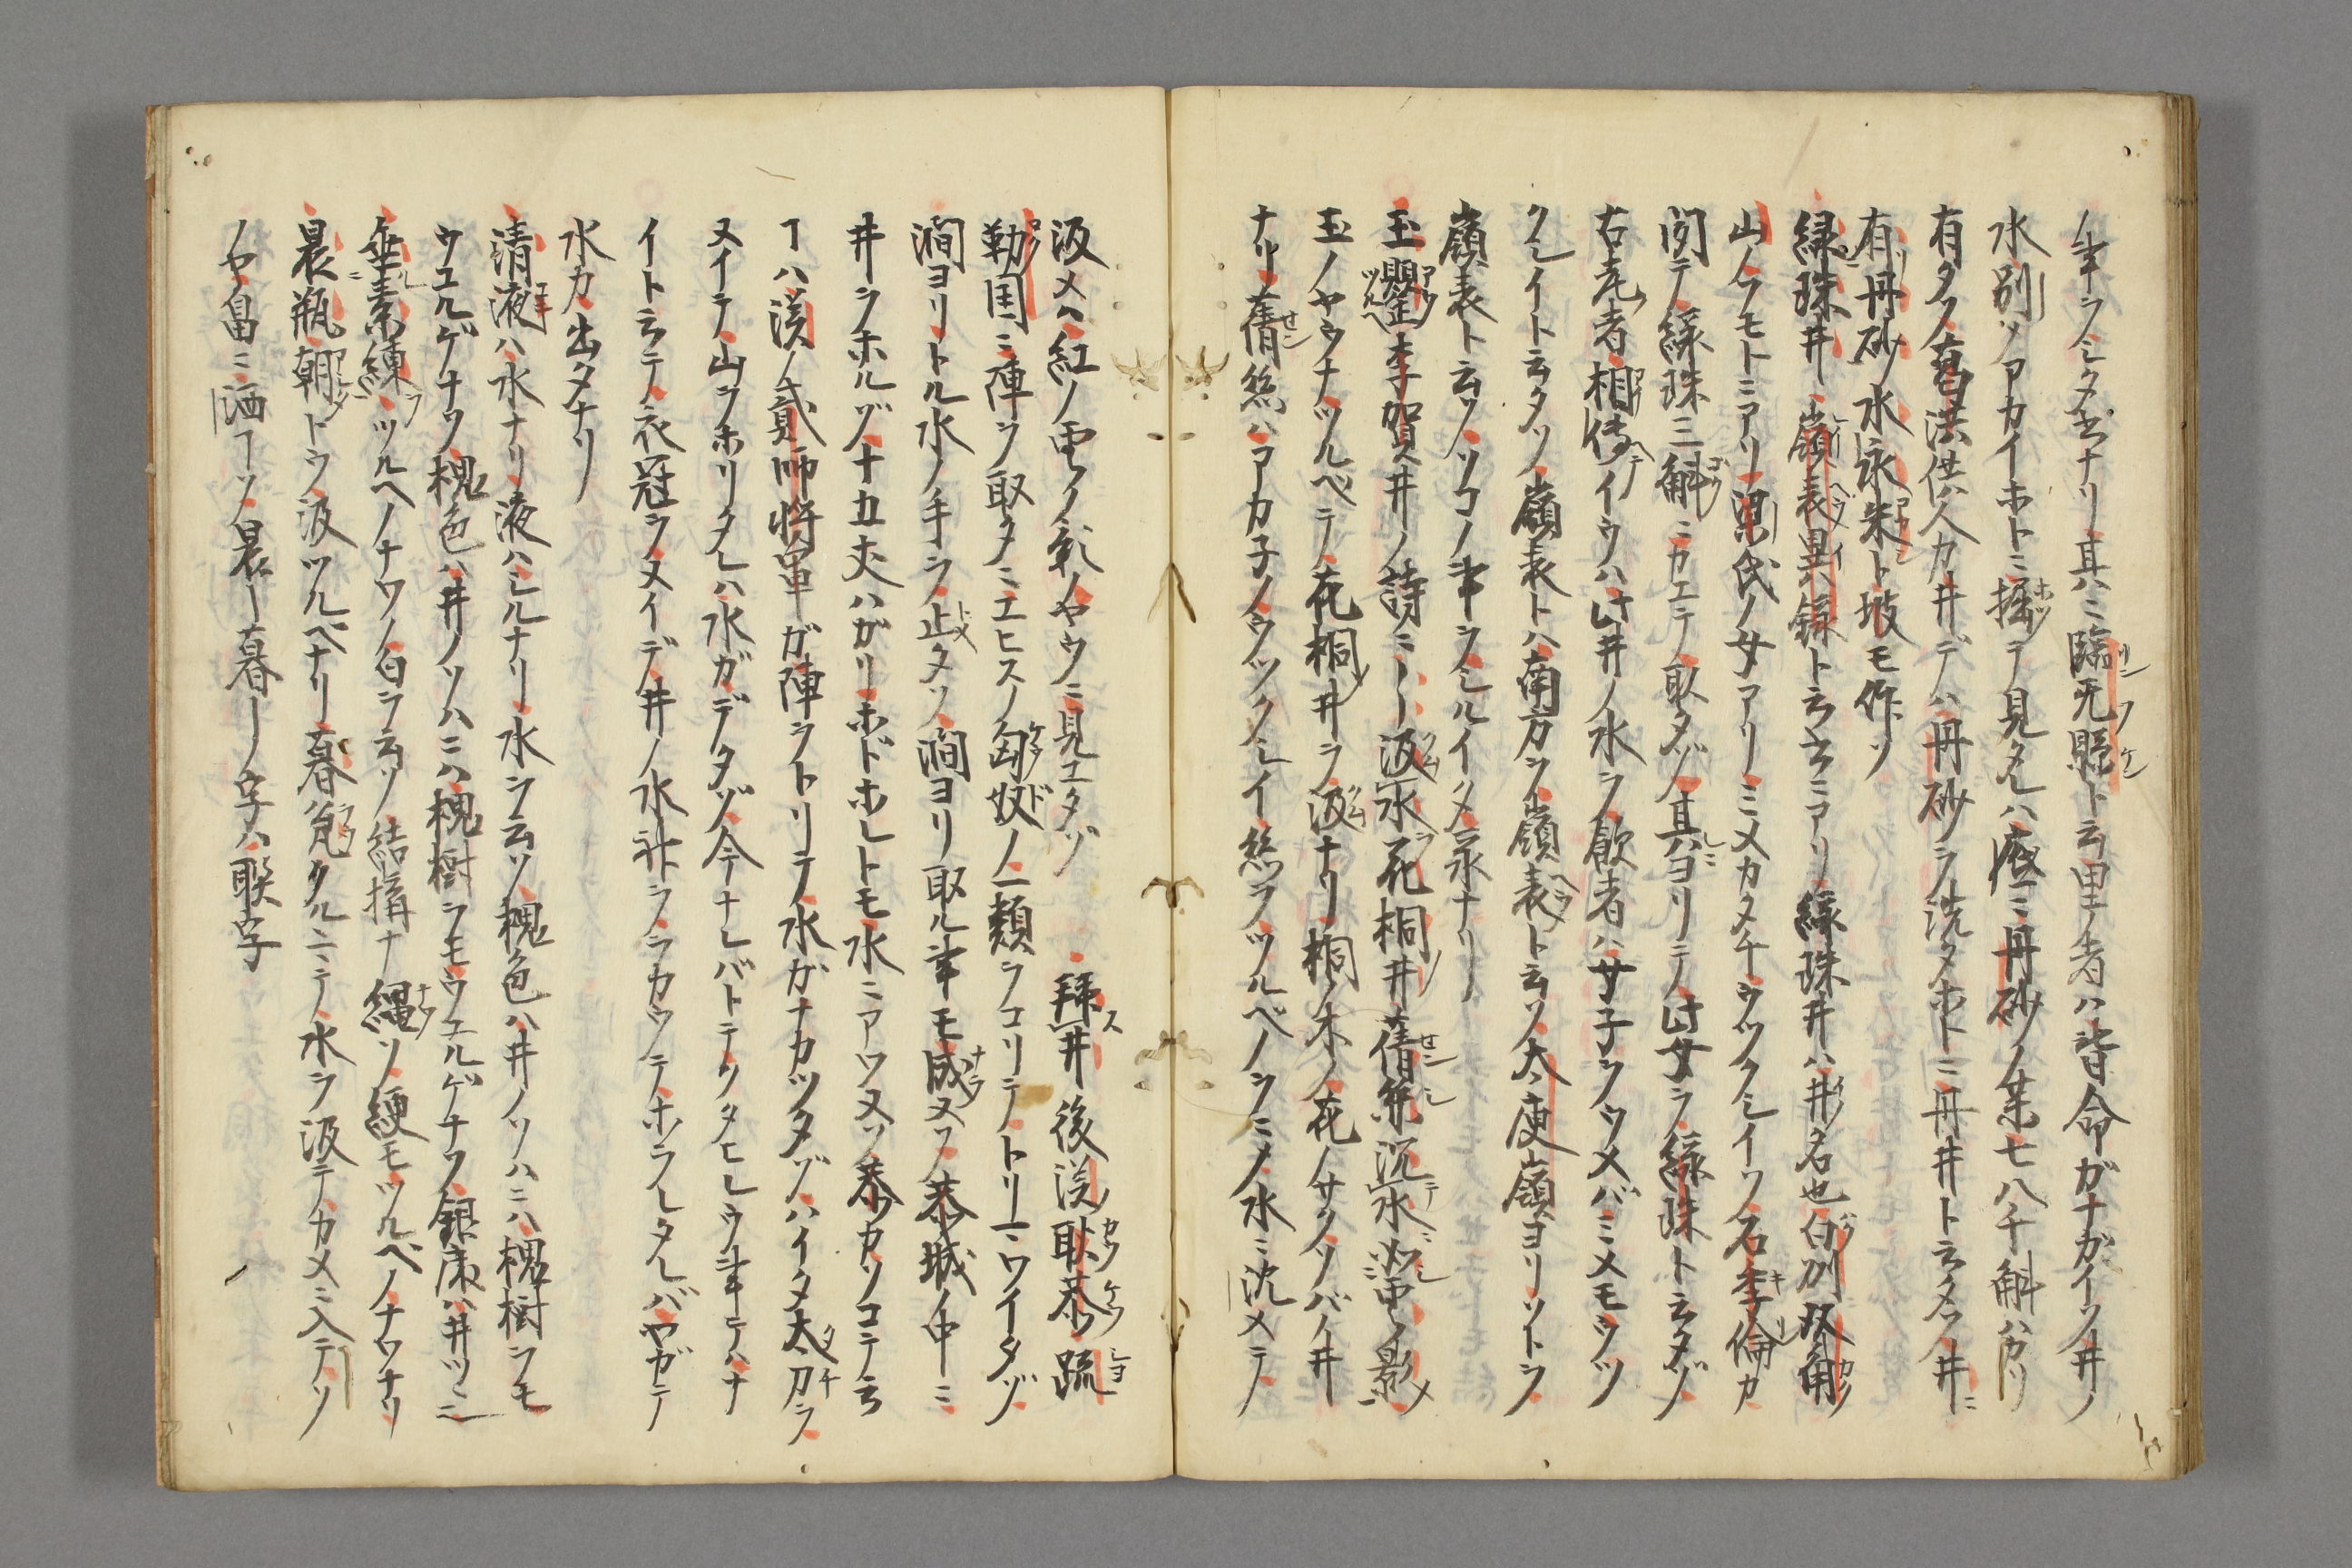 ノ事ヲシタホドナリ其ハニ臨沅縣ト云里ノ者ハ皆命ガナガイソ井ノ
水別ソアカイホトニ掘テ見タレハ底ニ丹砂ノ某七八千斛ハカリ
有タソ葛洪供人カ井デハ丹砂ヲ洗タホトニ丹井ト云タソ井ニ
有丹砂水永朱ト坡モ作ソ
緑珠井嶺表異録ト云ニアリ緑珠井ハ井ノ名也白別双角
山ノフモトニアリ梁氏ノ女アリミメカタチウツクシイソ石季倫カ
聞テ緑珠三斛ニカエテ取タゾ其ハヨリテ此女ヲ緑珠ト云タゾ
古老者相傳テイウハ此井ノ水ヲ飲者ハ女子ヲウメバミメモウツ
クシイト云タソ嶺表トハ南方ヲ嶺表ト云ソ大庾嶺ヨリソトヲ
嶺表ト云ソソコノ事ヲシルイタ録ナリ
玉甖李賀井ノ詩ニ汲水花桐井蒨絲沉水如雲影
玉ノヤウナツルベテ花桐井ヲ汲ナリ桐ノ木ノ花ノサクソバノ井
ナリ蒨絲ハアカ子ノウツクシイ絲ヲツルベノヲニメ水ニ沈メテ
汲メハ紅ノ雲ノ影ノヤウニ見エタゾ 拜井後漢耿恭疏
勒国ニ陣ヲ取タニエヒスノ匈奴ノ一類ヲコリテトリニワイタゾ
澗ヨリトル水ノ手ヲ止タソ澗ヨリ取ル事モ成ヌソ恭城ノ中ニ
井ヲホルゾ十五丈ハガリホドホレトモ水ニアワヌソ恭カソコテ云
ヿハ漢ノ貳師将軍ガ陣ヲトリテ水ガナカツタゾハイタ太刀ヲ
ヌイテ山ヲホリタレハ水ガデタゾ今ナレバトテクタヒレウ事テハナ
イト云テ衣冠ヲヌイデ井ノ水神ヲヲカウテホラレタレバヤガテ
水カ出タナリ
清液ハ水ナリ液ハシルナリ水ヲ云ソ槐色ハ井ノソハニハ槐樹ヲモ
ウエルゲナソ槐色ハ井ノソハニハ槐樹ヲモウエルゲナソ銀床ハ井ツヽミ
垂素綆ツルヘノナワノ白ヲ云ソ結搆ナ縄ソ綆モツルベノナワナリ
晨瓶朝トウ汲ツルベナリ暮瓮クルニテ水ヲ汲テカメニ入テソ
ノヤ畠ニ洒ヿソ晨ー暮ーノ字ハ聯字